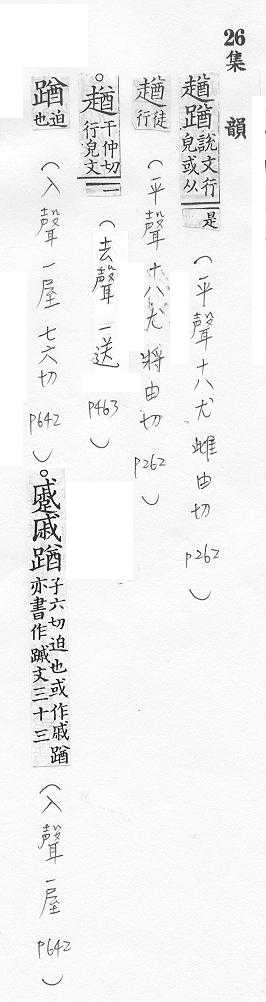 26集韻
趥蹖說文行皃或从是（平聲十八尤雌由切p262）
趥徒行（平聲十八尤將由切p262）
。趥千仲切行皃文一（去聲一送p463）
蹖迫也（入聲一屋七六切p642）
。蹙戚蹖子六切迫也或作戚蹖亦書作蹴文三十三（入聲一屋p642）